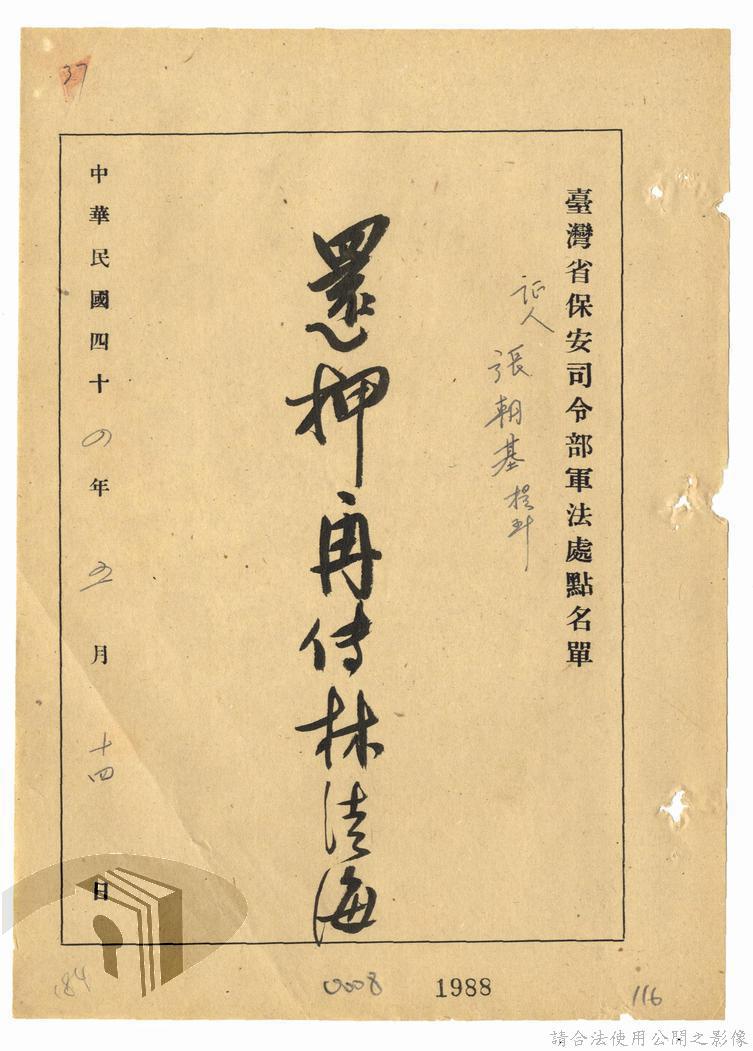 37
臺灣省保安司令部軍法處點名單
証人
張朝基 提訊
還押再傳林清海
中華民國四十四年五月十四日
184
0008
1988
116
請合法使用公開之影像